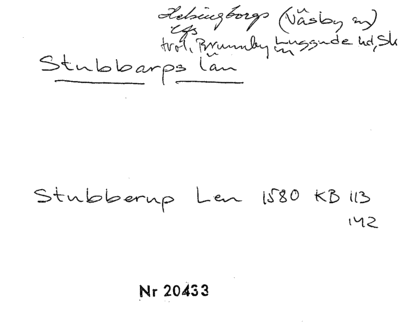 Helsingborgs (Väsby sn)
lfs
trol. Brunnby sn Luggude hd, Sk
Stubbarps län
Stubberup Len 1580 KB 113
142
Nr 20433